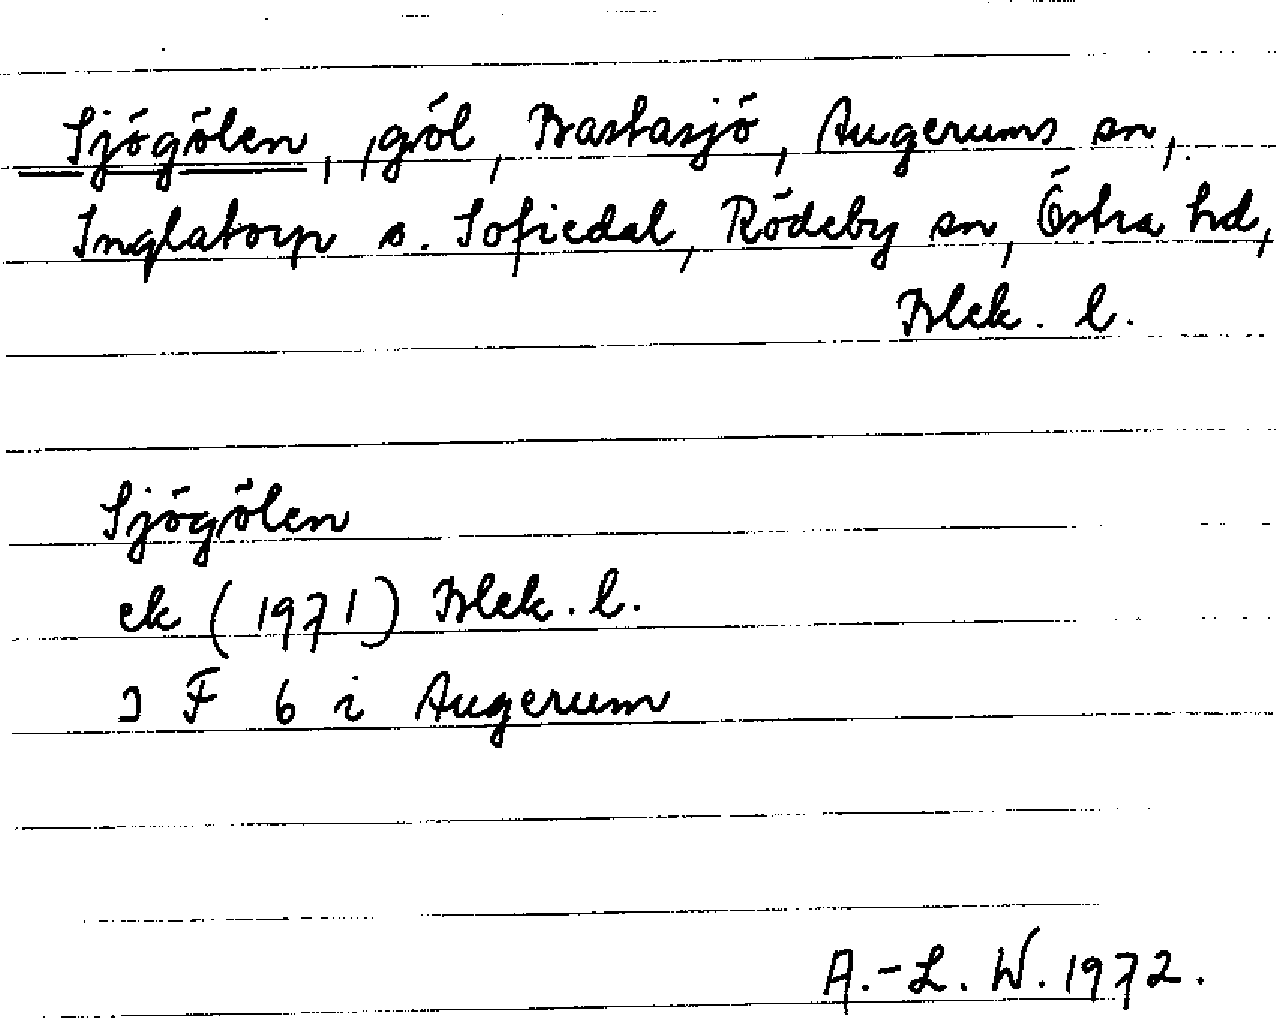 Sjögölen, ,göl, Bastasjö, Augerums sn,
Inglatorp o. Sofiedal, Rödeby sn, Östra hd,
Blek. l.
Sjögölen
ek (1971) Blek. l.
3 F 6 i Augerum
A.-L. W. 1972.